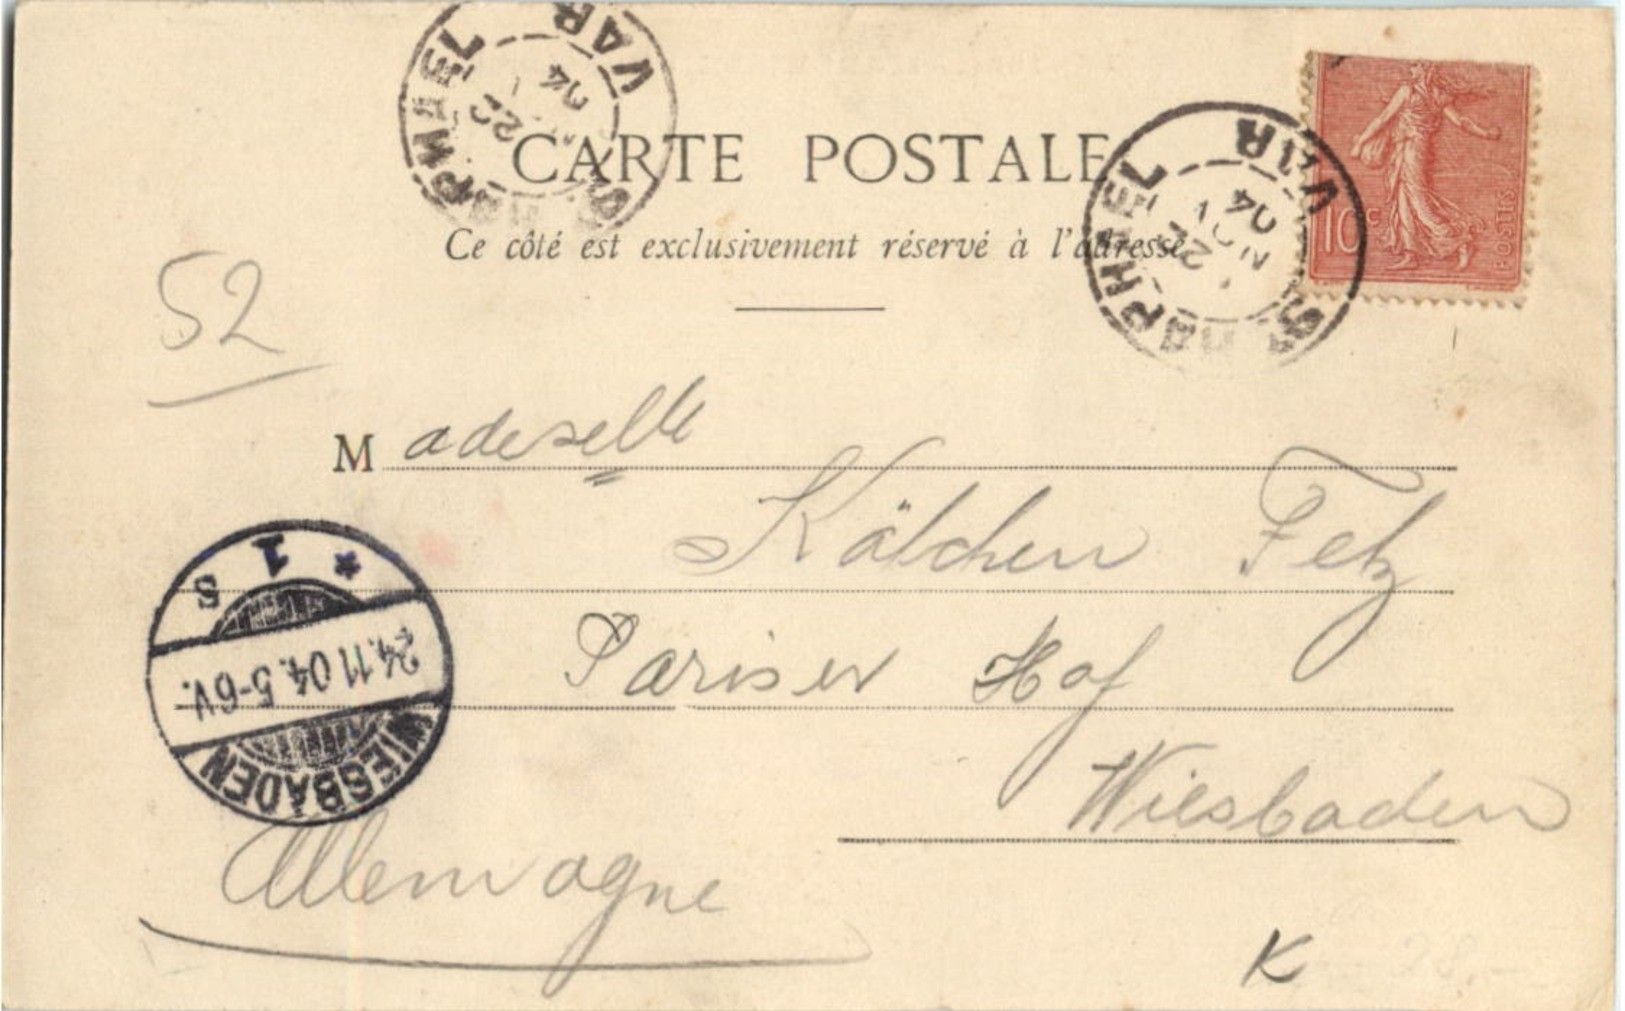 CARTE POSTALE
Ce côté est exclusivement réservé à l'adresse
ST RAPHAEL
VAR
22
04
ST RAPHAEL
VAR
22
NOV
04
10c
POSTES
52
Madeselle
Kätchen Fetz
Pariser Hof
Wiesbaden
Allemagne
WIESBADEN
24.11 04. 5-6 V.
* 1 s
K
28,-